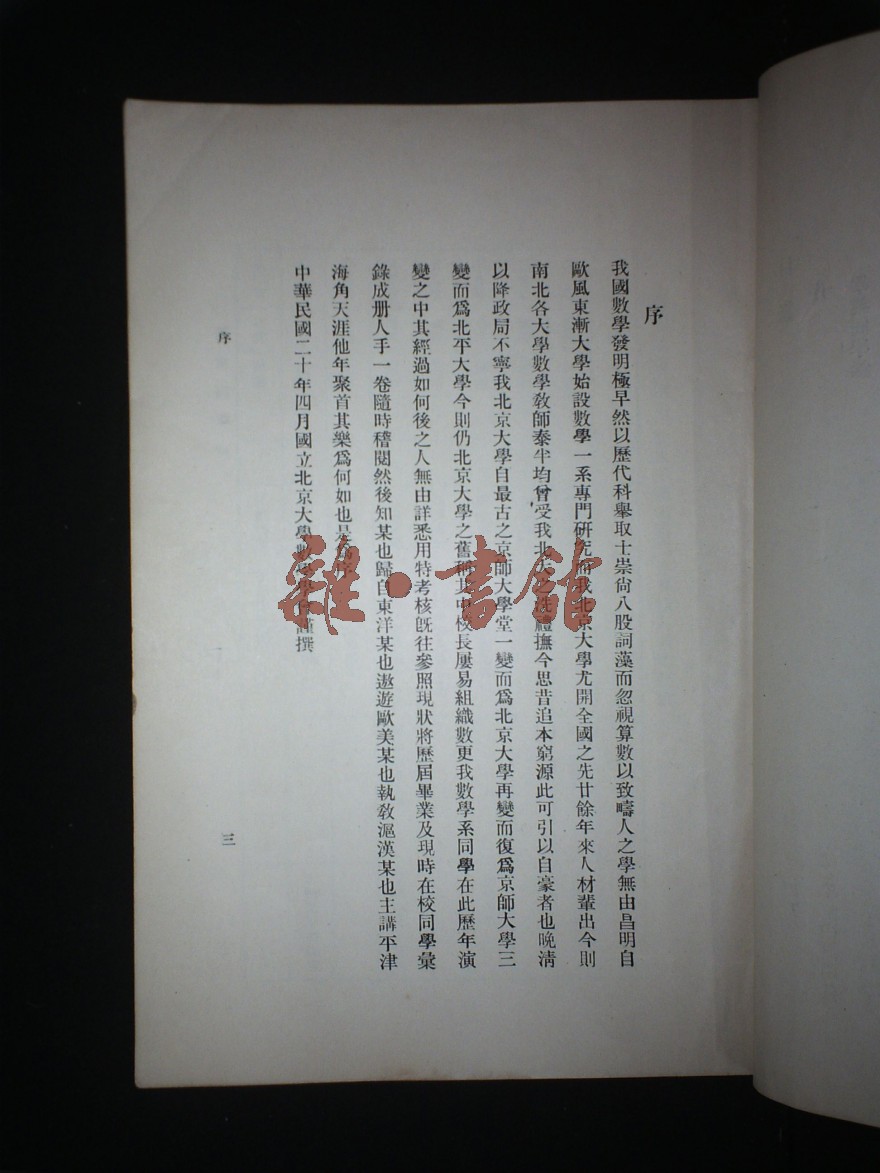 序
我國數學發明極早然以歷代科舉取士崇尙八股詞藻而忽視算數以致疇人之學無由昌明自
歐風東漸大學始設數學一系專門研究而我北京大學尤開全國之先廿餘年來人材輩出今則
南北各大學數學敎師泰半均曾受我北大之洗禮撫今思昔追本窮源此可引以自豪者也晚淸
以降政局不寧我北京大學自最古之京師大學堂一變而爲北京大學再變而復爲京師大學三
變而爲北平大學今則仍北京大學之舊稱其中校長屢易組織數更我數學系同學在此歷年演
變之中其經過如何後之人無由詳悉用特考核旣往參照現狀將歷屆畢業及現時在校同學彙
錄成册人手一卷隨時稽閱然後知某也歸自東洋某也遨遊歐美某也執敎滬漢某也主講平津
海角天涯他年聚首其樂爲何如也是爲序
中華民國二十年四月國立北京大學數學學會謹撰
序
三
雜·書館